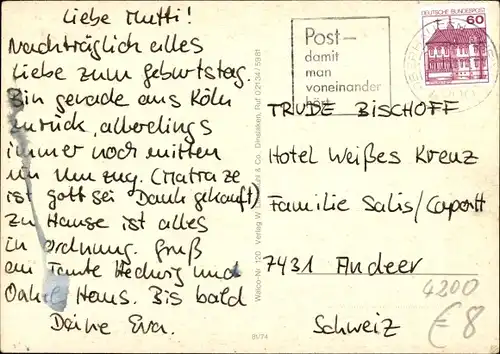 Liebe Mutti!
Nachträglich alles
Liebe zum Geburtstag.
Bin gerade aus Köln
zurück, allerdings
immer noch mitten
im Umzug. (Matraze
ist gott sei Dank gekauft)
Zu Hause ist alles
in Ordnung. Gruß
an Tante Hedwig und
Onkel Hans. Bis bald
Deine Eva.
Post-
damit
man
voneinander
hört
DEUTSCHE BUNDESPOST
60
TRUDE BISCHOFF
Hotel Weißes Kreuz
Familie Salis/
7431 Andeer
Schweiz
4200
€ 8
Walco-Nr. 120 Verlag W. & Co. Dinslaken, Ruf 02134/5981
81/74